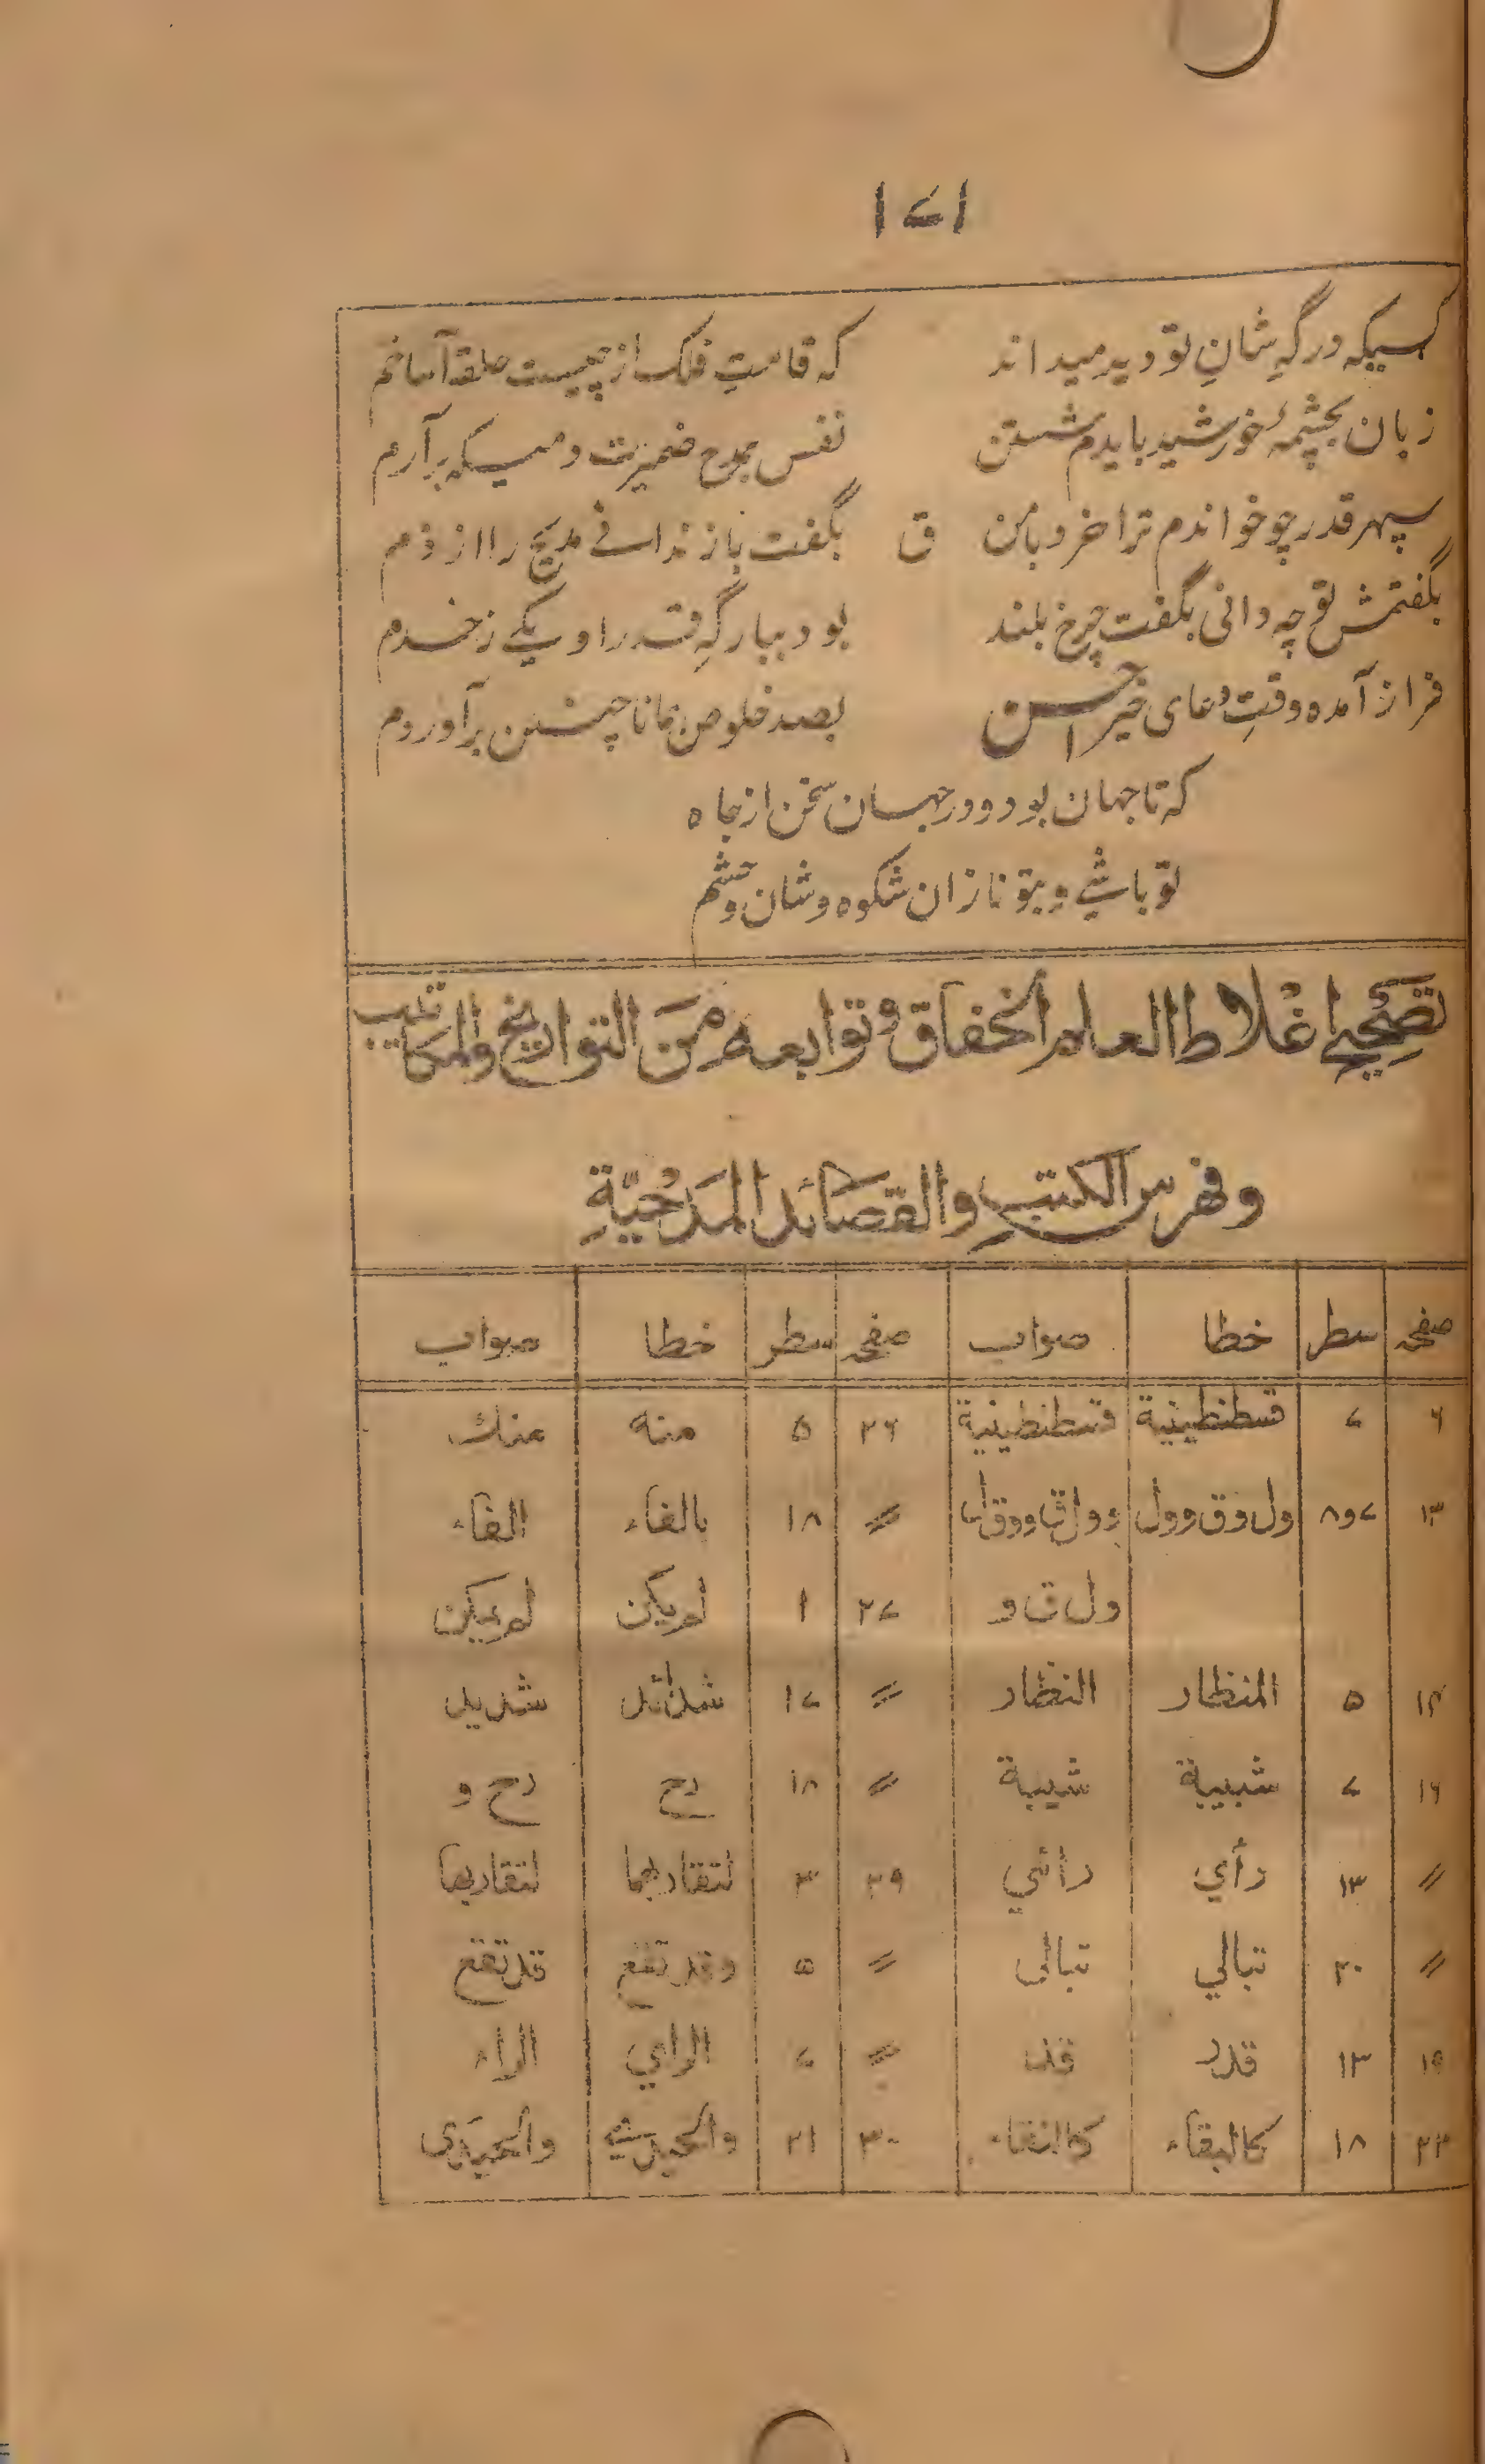 ۱۷۱
کسیکه درگهِ شانِ تو دید میداند که قامتِ فلک از چیست حلقه آسا خم
زبان بچشمهٔ خورشید بایدم شستن نفس بمدح ضمیرت دمیکه برآرم
سپهر قدر چو خواندم ترا خرد با من ق بگفت باز ندانی مدیح را از ذم
بگفتمش تو چه دانی بگفت چرخ بلند بود ببارگهِ قدر او یکی ز خدم
فراز آمده وقتِ دعای خیر احسن بصد خلوص همانا چنین برآور دم
که تا جهان بود و در جهان سخن از جاه
تو باشی و بتو نازان شکوه و شان و حشم
تصحيح اغلاط العلم الخفاق وتوابعه من التواريخ والمكاتيب
وفهرس الكتب والقصائد المدحيّة
صفحه سطر خطا صواب صفحه سطر خطا صواب
۶ ۷ قسطنطينية قسطنطينية ۲۶ ۵ منه عنك
۱۳ ۷و۸ ول وق وول ۱۸ بالفاء الفاء
ول ق و ۲۷ ۱ لم يكن لم يمكن
۱۴ ۵ المنظار النظار 〃 ۱۷ شدائد شديد
۱۶ ۷ شبيبة شيبة 〃 ۱۸ رح رح و
〃 ۱۳ رأي رائي ۲۹ ۳ لتقاربهما لتقاربها
〃 ۲۰ تبالي تبالى 〃 ۵ وقد تقع قد تقع
۱۹ ۱۳ قدر قد 〃 ۷ الراي الراء
۲۳ ۱۸ كالبقاء كالنقاء ۳۰ ۲۱